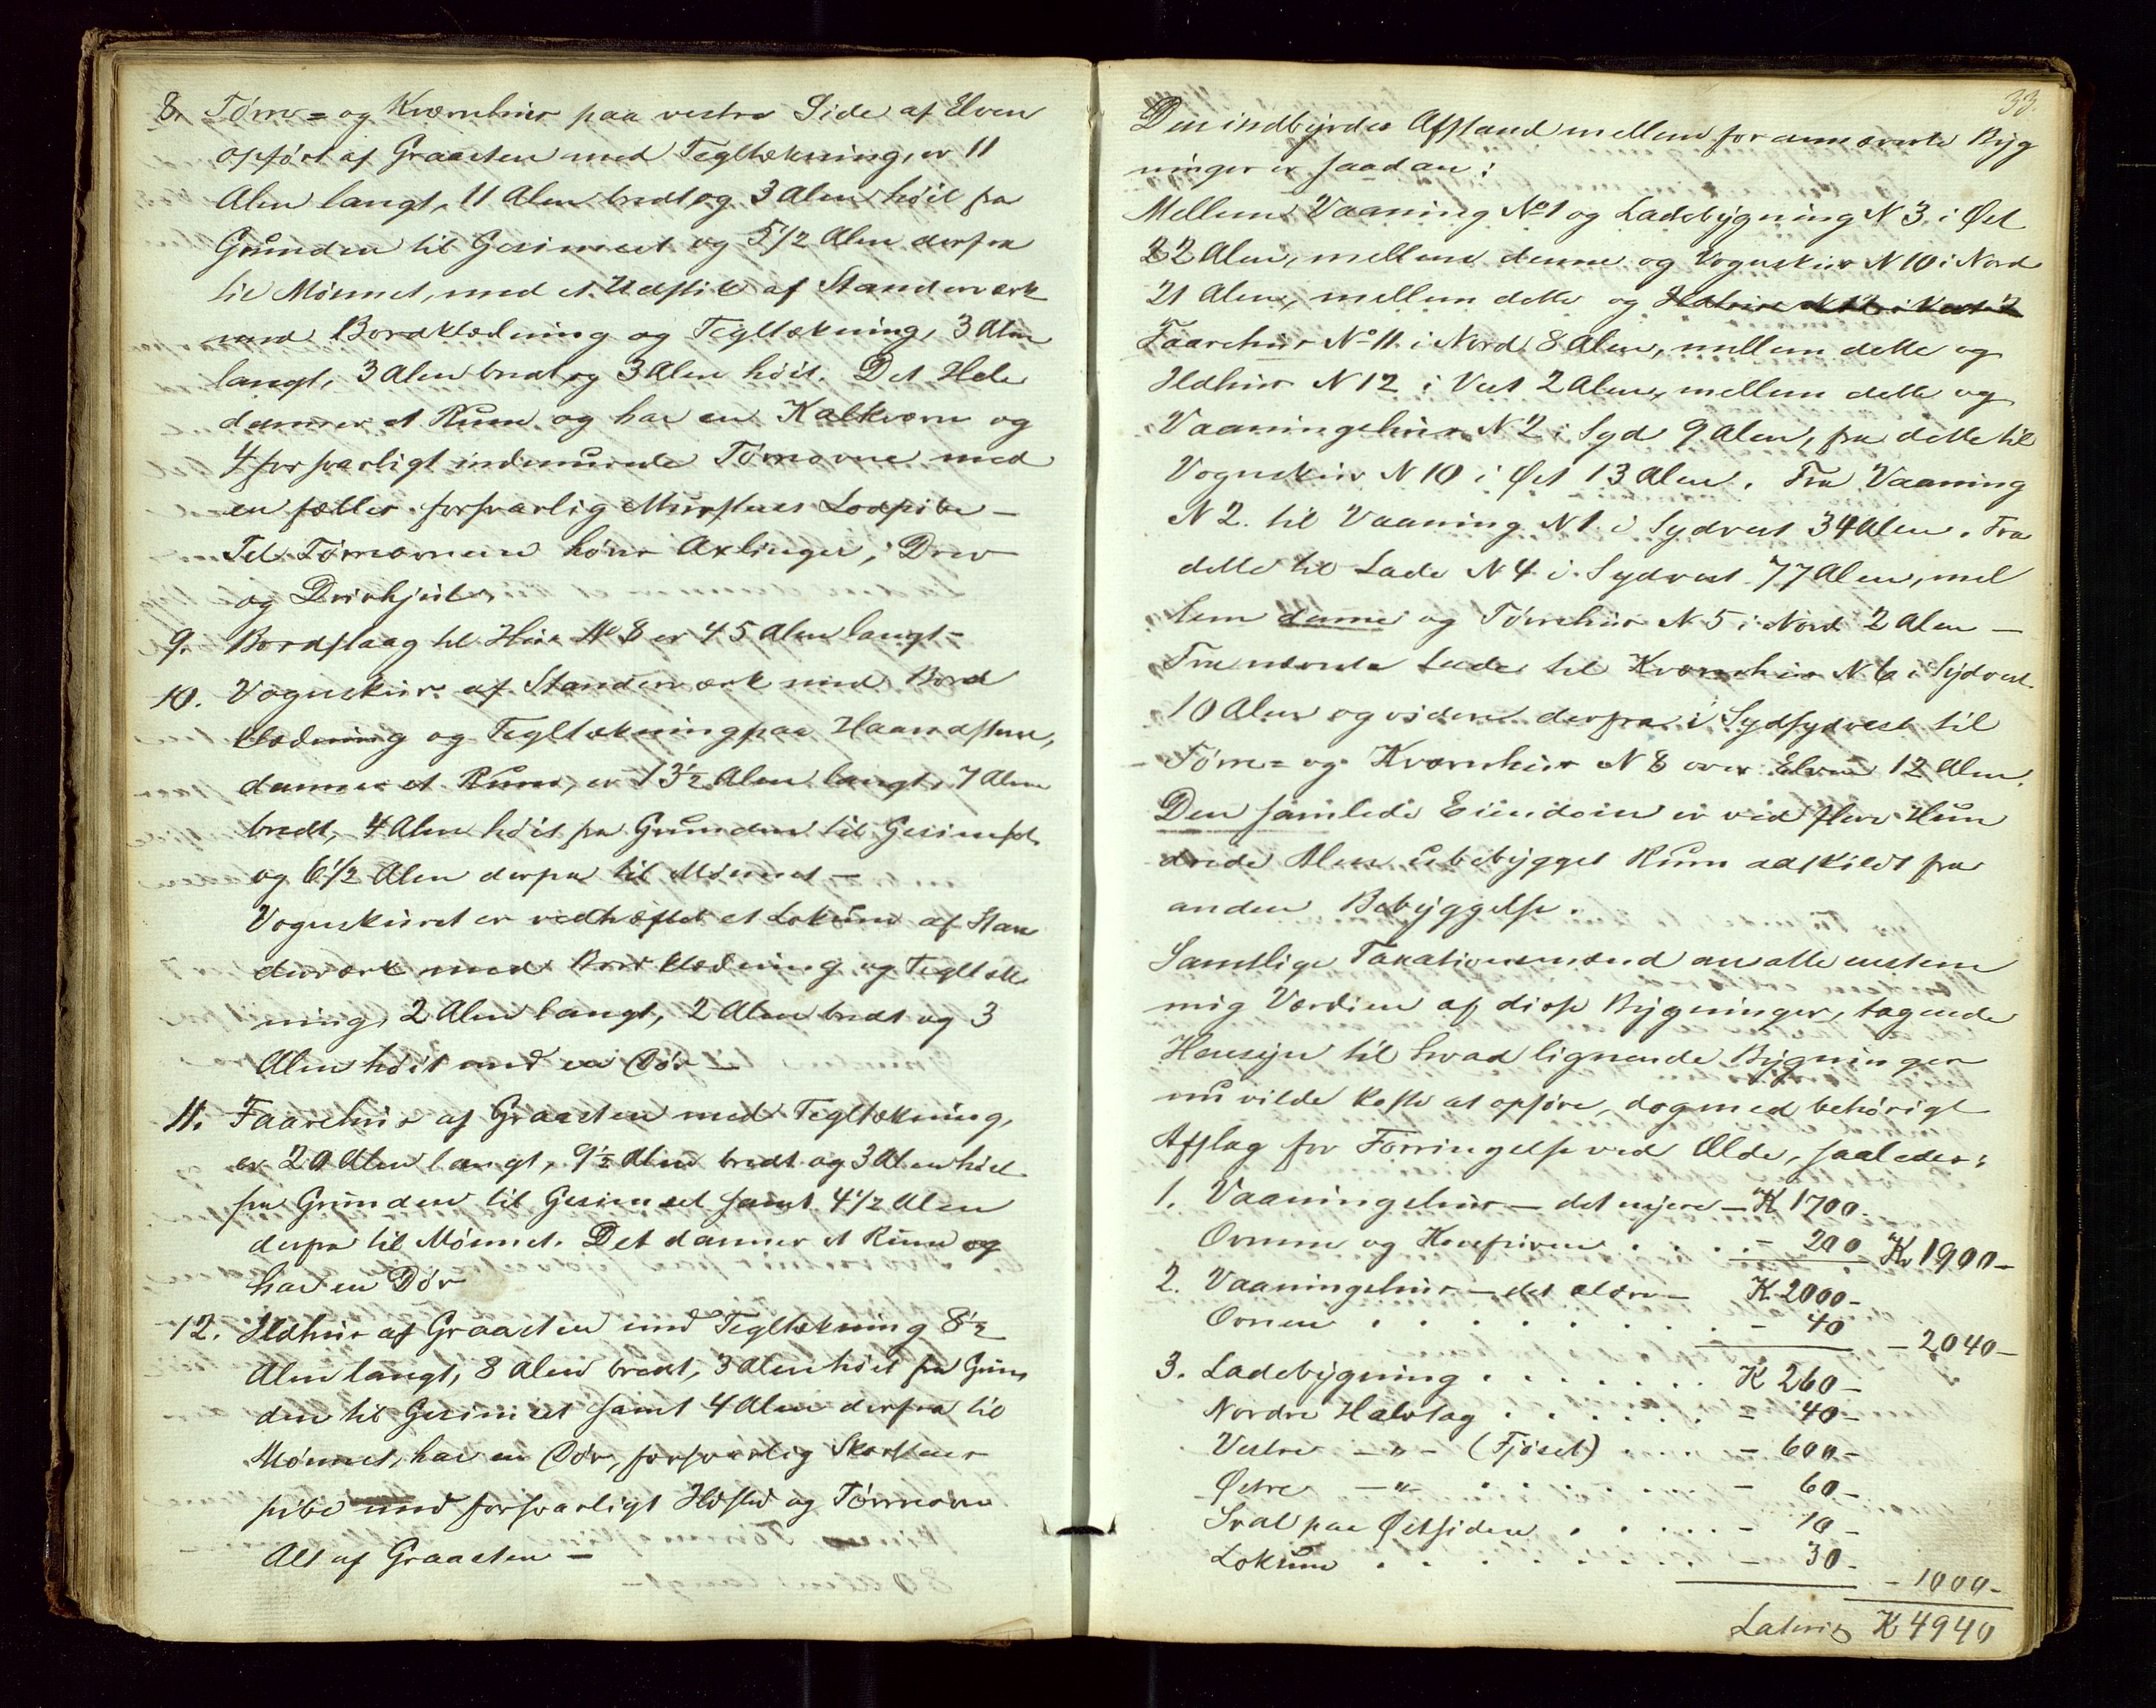 8. Tørre- og Kværnhuus paa vestre Side af Elven
opført af Graasten med Tegltækning, er 11
Alen langt, 11 Alen bredt og 3 Alen høit fra
Grunden til Gesimset og 5 1/2 Alen derfra
til Mønnet, med et Udstik af Standerværk
med Bordklædning og Tegltækning, 3 Alen
langt, 3 Alen bredt og 3 Alen høit. Det Hele
danner et Rum og har en Kalkværn og
4 forsvarligt indmurede Tørreovne med
en fælles forsvarlig Murstens Lodpibe -
Til Tørreovnene hører Axlinger, Drev
og Drivhjul.
9. Bordslaag til Huus No 8 er 45 Alen langt -
10. Vognskuur af Standerværk med Bord
klædning og Tegltækning paa Haandstene,
danner et Rum, er 13 1/2 Alen langt, 7 Alen
bredt, 4 Alen høit fra Grunden til Gesimset
og 6 1/2 Alen derfra til Mønnet -
Vognskuret er vedhæftet et Lokum af Stan
derværk med Bordklædning og Tegltæk
ning, 2 Alen langt, 2 Alen bredt og 3
Alen høit med en Dør -
11. Faarehuus af Graasten med Tegltækning,
er 20 Alen langt, 9 1/2 Alen bredt og 3 Alen høit
fra Grunden til Gesimset samt 4 1/2 Alen
derfra til Mønnet. Det danner et Rum og
har en Dør
12. Ildhuus af Graasten med Tegltækning 8 1/2
Alen langt, 8 Alen bredt, 3 Alen høit fra Grun
den til Gesimset samt 4 Alen derfra til
Mønnet, har en Dør, forsvarlig Skorstens
pibe med forsvarligt Ildsted og Tørreovn
Alt af Graasten -
33.
Den indbyrdes Afstand mellem forannævnte Byg
ninger er saadan:
Mellem Vaaning No 1 og Ladebygning N 3 i Øst
22 Alen, mellem denne og Vognskuur N 10 i Nord
21 Alen, mellem dette og Ildhuus N 12 i Vest 2
Faarehuus No 11 i Nord 8 Alen, mellem dette og
Ildhuus N 12 i Vest 2 Alen, mellem dette og
Vaaningshuus N 2 i Syd 9 Alen, fra dette til
Vognskuur N 10 i Øst 13 Alen. Fra Vaaning
N 2 til Vaaning N 1 i Sydvest 34 Alen. Fra
dette til Lade N 4 i Sydvest 77 Alen, mel
lem denne og Tørrehuus N 5 i Nord 2 Alen -
Fra nævnte Lade til Kværnhuus N 6 i Sydvest
10 Alen og videre derfra i Sydsydvest til
Tørre- og Kværnhuus N 8 over Elven 12 Alen.
Den samlede Eiendom er ved flere Hun
drede Alen ubebygget Rum adskildt fra
anden Bebyggelse.
Samtlige Taxationsmænd ansatte eenstem
mig Værdien af disse Bygninger, tagende
Hensyn til hvad lignende Bygninger
nu vilde koste at opføre, dog med behørigt
Afslag for Forringelse ved Ælde, saaledes:
1. Vaaningshuus - det nyere - Kr 1700.
Ovnene og Komfuren . . . . - 200 Kr 1900 -
2. Vaaningshuus - det ældre - K 2000 -
Ovnen . . . . . . . . . - 40 - 2040 -
3. Ladebygning . . . . . . . K 260 -
Nordre Halvtag . . . . . . - 40 -
Vestre - " - (Fjøset) . . . . - 600 -
Østre - " - . . . . . . - 60 -
Sval paa Østsiden . . . . . - 10 -
Lokum . . . . . . . . - 30 -
- 1000 -
Lateris K 4940